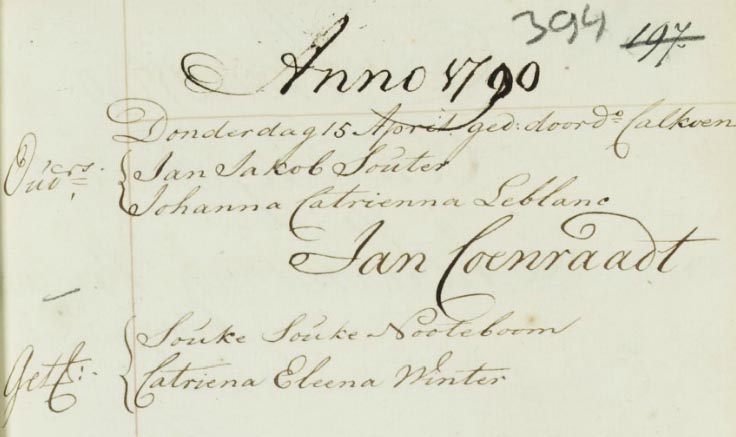 394 197.
Anno 1790
Donderdag 15 April ged: door dº Calkoen
Ouders. Jan Jakob Souter
Johanna Catrienna Leblanc
Jan Coenraadt
Souke Souke Nooteboom
Gett: Catriena Eleena Winter